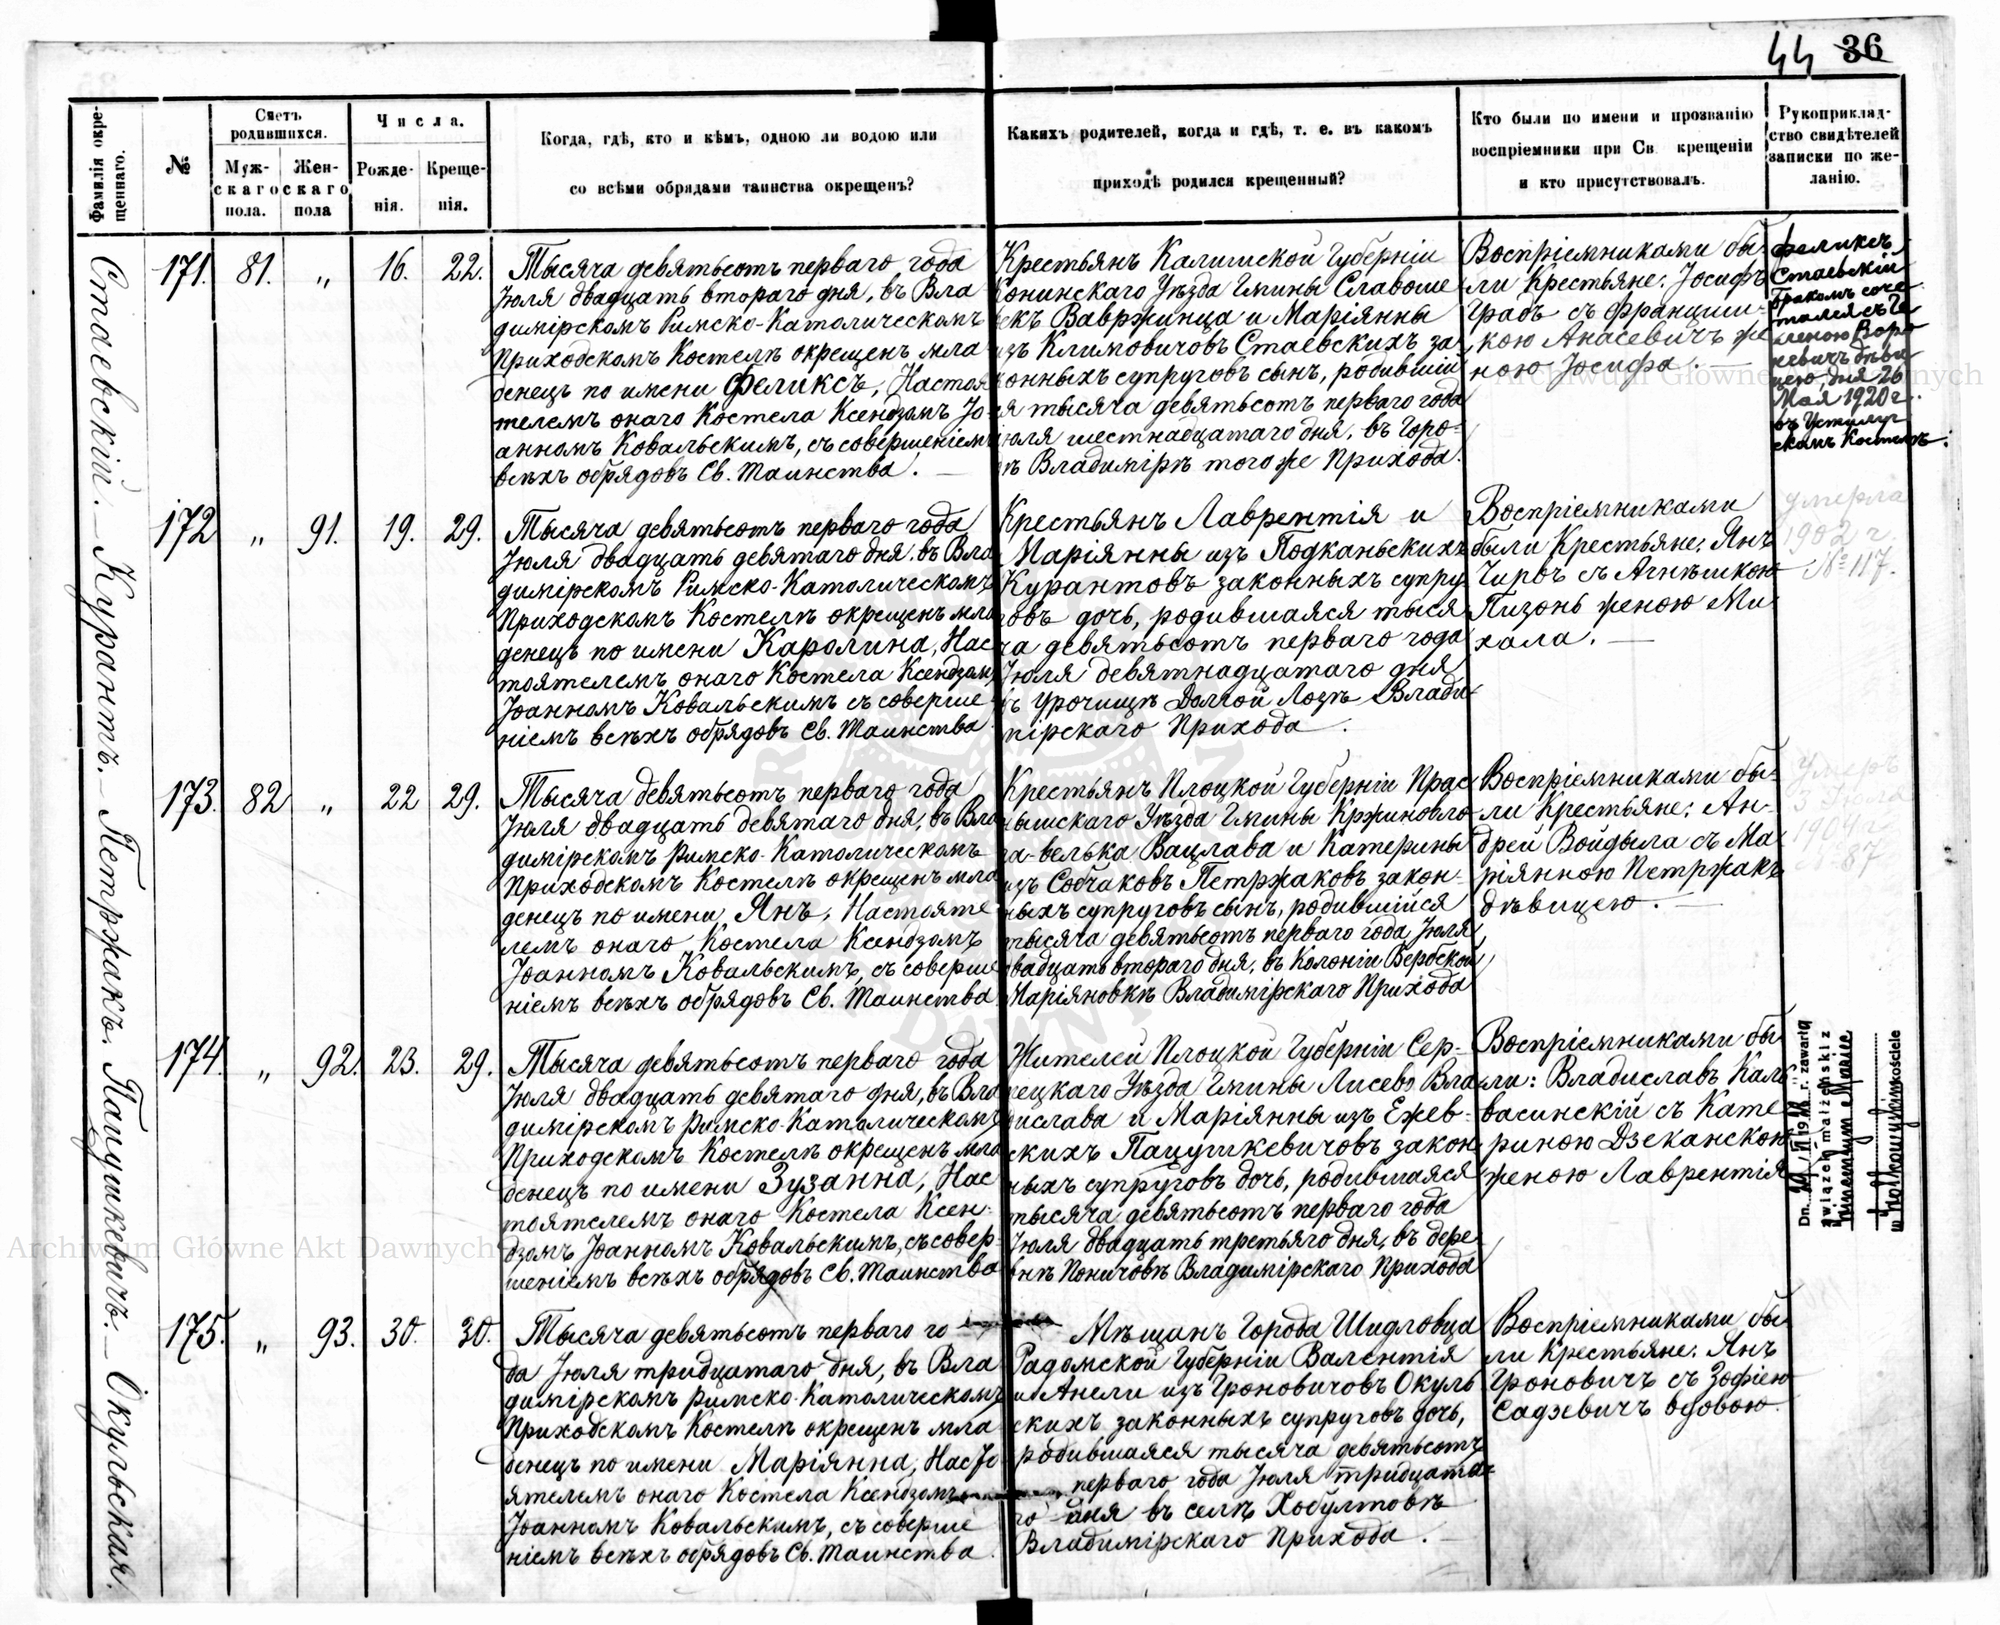 44 36
Фамилія окре-
щеннаго.
№
Счетъ
родившихся.
Муж-
скаго
пола.
Жен-
скаго
пола
Числа.
Рожде-
нія.
Креще-
нія.
Когда, гдѣ, кто и кѣмъ, одною ли водою или
со всѣми обрядами таинства окрещенъ?
Какихъ родителей, когда и гдѣ, т. е. въ какомъ
приходѣ родился крещенный?
Кто были по имени и прозванію
воспріемники при Св. крещеніи
и кто присутствовалъ.
Рукоприклад-
ство свидѣтелей
записки по же-
ланію.
Стаевскій. — Курантъ. — Петржакъ. Пацушкевичъ. — Окульская.
171. 81. „ 16. 22.
Тысяча девятьсотъ перваго года
Іюля двадцать втораго дня, въ Вла
димірскомъ Римско-Католическомъ
Приходскомъ Костелѣ окрещенъ мла
денецъ по имени Феликсъ, Настоя
телемъ онаго Костела Ксендзомъ Іо
анномъ Ковальскимъ, съ совершеніемъ
всѣхъ обрядовъ Св. Таинства. —
Крестьянъ Калишской Губерніи
Конинскаго Уѣзда Гмины Славоше
екъ Вавржинца и Маріянны
изъ Климовичовъ Стаевскихъ за
конныхъ супруговъ сынъ, родившій
ся тысяча девятьсотъ перваго года
Іюля шестнадцатаго дня, въ Горо-
дѣ Владимірѣ того же Прихода.
Воспріемниками бы-
ли Крестьяне: Іосифъ
Градъ съ Францишт-
кою Анасевичъ же
ною Іосифа. —
Феликсъ
Стаевскій
бракомъ соче
тался съ Ге
леною Воро
кевичъ дѣви
цею, дня 26
Мая 1920 г.
въ Устилуг
скомъ Костелѣ.
172 „ 91. 19. 29.
Тысяча девятьсотъ перваго года
Іюля двадцать девятаго дня, въ Вла
димірскомъ Римско-Католическомъ
Приходскомъ Костелѣ окрещенъ мла
денецъ по имени Каролина, Нас
тоятелемъ онаго Костела Ксендзомъ
Іоанномъ Ковальскимъ съ соверше
ніемъ всѣхъ обрядовъ Св. Таинства
Крестьянъ Лаврентія и
Маріянны изъ Подканьскихъ
Курантовъ законныхъ супру
говъ дочь, родившаяся тыся
ча девятьсотъ перваго года
Іюля девятнадцатаго дня
въ Урочищѣ Долгой Лозѣ Влади
мірскаго Прихода.
Воспріемниками
были Крестьяне: Янъ
Чирочъ съ Агнѣшкою
Пизонь женою Ми
хала. —
умерла
1902 г.
№ 117.
173. 82 „ 22 29.
Тысяча девятьсотъ перваго года
Іюля двадцать девятаго дня, въ Вла
димірскомъ Римско-Католическомъ
Приходскомъ Костелѣ окрещенъ мла
денецъ по имени Янъ, Настояте
лемъ онаго Костела Ксендзомъ
Іоанномъ Ковальскимъ, съ соверше
ніемъ всѣхъ обрядовъ Св. Таинства
Крестьянъ Плоцкой Губерніи Прас
нышскаго Уѣзда Гмины Кржиновло
га-велька Вацлава и Катерины
изъ Собчаковъ Петржаковъ закон-
ныхъ супруговъ сынъ, родившійся
тысяча девятьсотъ перваго года Іюля
двадцать втораго дня, въ Колоніи Вербской
Маріяновкѣ Владимірскаго Прихода
Воспріемниками бы-
ли Крестьяне: Ан-
дрей Войдыла съ Ма
ріянною Петржакъ
дѣвицею. —
Умеръ
1904 г.
87
174. „ 92. 23. 29.
Тысяча девятьсотъ перваго года
Іюля двадцать девятаго дня, въ Вла
димірскомъ Римско-Католическомъ
Приходскомъ Костелѣ окрещенъ мла
денецъ по имени Зузанна, Нас
тоятелемъ онаго Костела Ксен-
дзомъ Іоанномъ Ковальскимъ, съ совер-
шеніемъ всѣхъ обрядовъ Св. Таинства
Жителей Плоцкой Губерніи Сер-
пецкаго Уѣзда Гмины Лисево Вла
дислава и Маріянны изъ Ежев-
скихъ Пацушкевичовъ закон
ныхъ супруговъ дочь, родившаяся
тысяча девятьсотъ перваго года
Іюля двадцать третьяго дня, въ дере
внѣ Поничовѣ Владимірскаго Прихода
Воспріемниками бы
ли: Владиславъ Каль-
васинскій съ Кате
риною Дзеканскою
женою Лаврентія
Dn. r. zawarła
związek małżeński z
w kościele
175. „ 93. 30. 30.
Тысяча девятьсотъ перваго го
да Іюля тридцатаго дня, въ Вла
димірскомъ Римско-Католическомъ
Приходскомъ Костелѣ окрещенъ мла
денецъ по имени Маріянна, Насто
ятелемъ онаго Костела Ксендзомъ
Іоанномъ Ковальскимъ, съ соверше
ніемъ всѣхъ обрядовъ Св. Таинства.
Мѣщанъ Города Шидловца
Радомской Губерніи Валентія
и Анели изъ Гроновичовъ Окуль
скихъ законныхъ супруговъ дочь,
родившаяся тысяча девятьсотъ
перваго года Іюля тридцата-
го дня въ селѣ Хобултовѣ
Владимірскаго Прихода. —
Воспріемниками бы
ли Крестьяне: Янъ
Гроновичъ съ Зофіею
Садзевичъ вдовою.
Archiwum Główne Akt Dawnych
Archiwum Główne Akt Dawnych